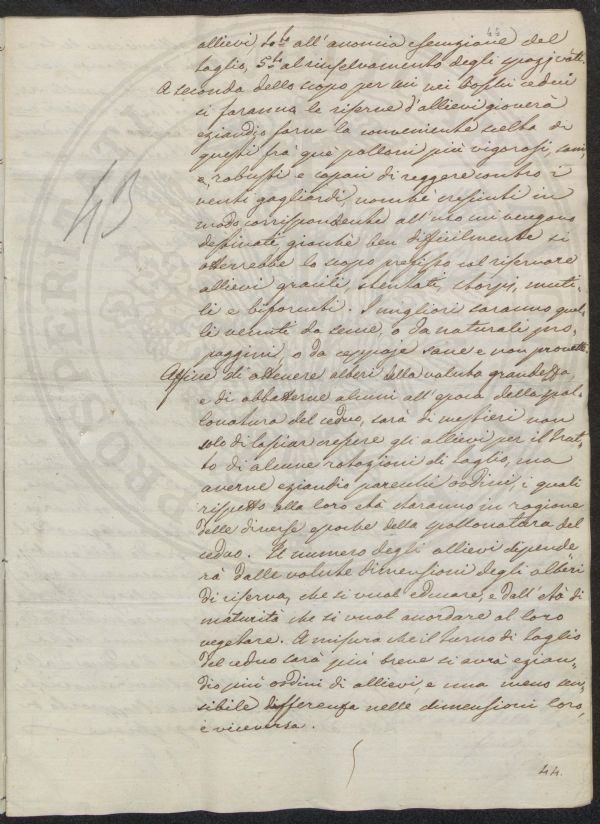 45
allievi, 4o to all'annua esenzione del
taglio, 5o to al rinselvamento degli spazj vôti.
A seconda dello scopo per cui nei boschi cedui
si faranno le riserve d'allievi gioverà
eziandio farne la conveniente scelta di
questi frà que' polloni più vigorosi, sani,
e, robusti e capaci di reggere contro i
venti gagliardi, nonchè cresciuti in
modo corrispondente all'uso cui vengono
destinati, giacchè ben difficilmente si
otterrebbe lo scopo prefisso col riservare
allievi gracili, stentati, storpj, muti-
li e biforcuti. I migliori saranno quel-
li venuti da seme, o da naturali pro-
paggini, o da ceppaje sane e non provette.
43
Affine di ottenere alberi della voluta grandezza
e di abbatterne alcuni all'epoca della spol-
lonatura del ceduo, sarà di mestieri non
solo di lasciar crescere gli allievi per il trat-
to di alcune rotazioni di taglio, ma
averne eziandio parecchi ordini, i quali
rispetto alla loro età staranno in ragione
delle diverse epoche della spollonatura del
ceduo. Il numero degli allievi dipende
rà dalle volute dimensioni degli alberi
di riserva, che si vuol educare, e dall'età di
maturità che si vuol accordare al loro
vegetare. A misura che il turno di taglio
del ceduo sarà più breve si avrà ezian-
dio più ordini di allievi, e una meno sen-
sibile differenza nelle dimensioni loro,
e viceversa.
44.
PROSPERITATI